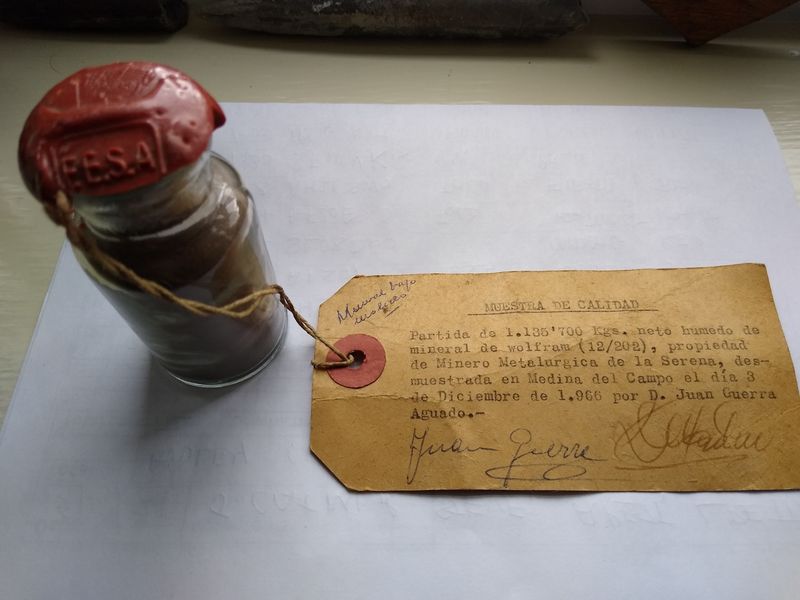 F.E.S.A
Mineral bajo
MUESTRA DE CALIDAD
Partida de 1.135'700 Kgs. neto humedo de
mineral de wolfram (12/202), propiedad
de Minero Metalurgica de la Serena, des-
muestrada en Medina del Campo el día 3
de Diciembre de 1.966 por D. Juan Guerra
Aguado.-
Juan Guerra